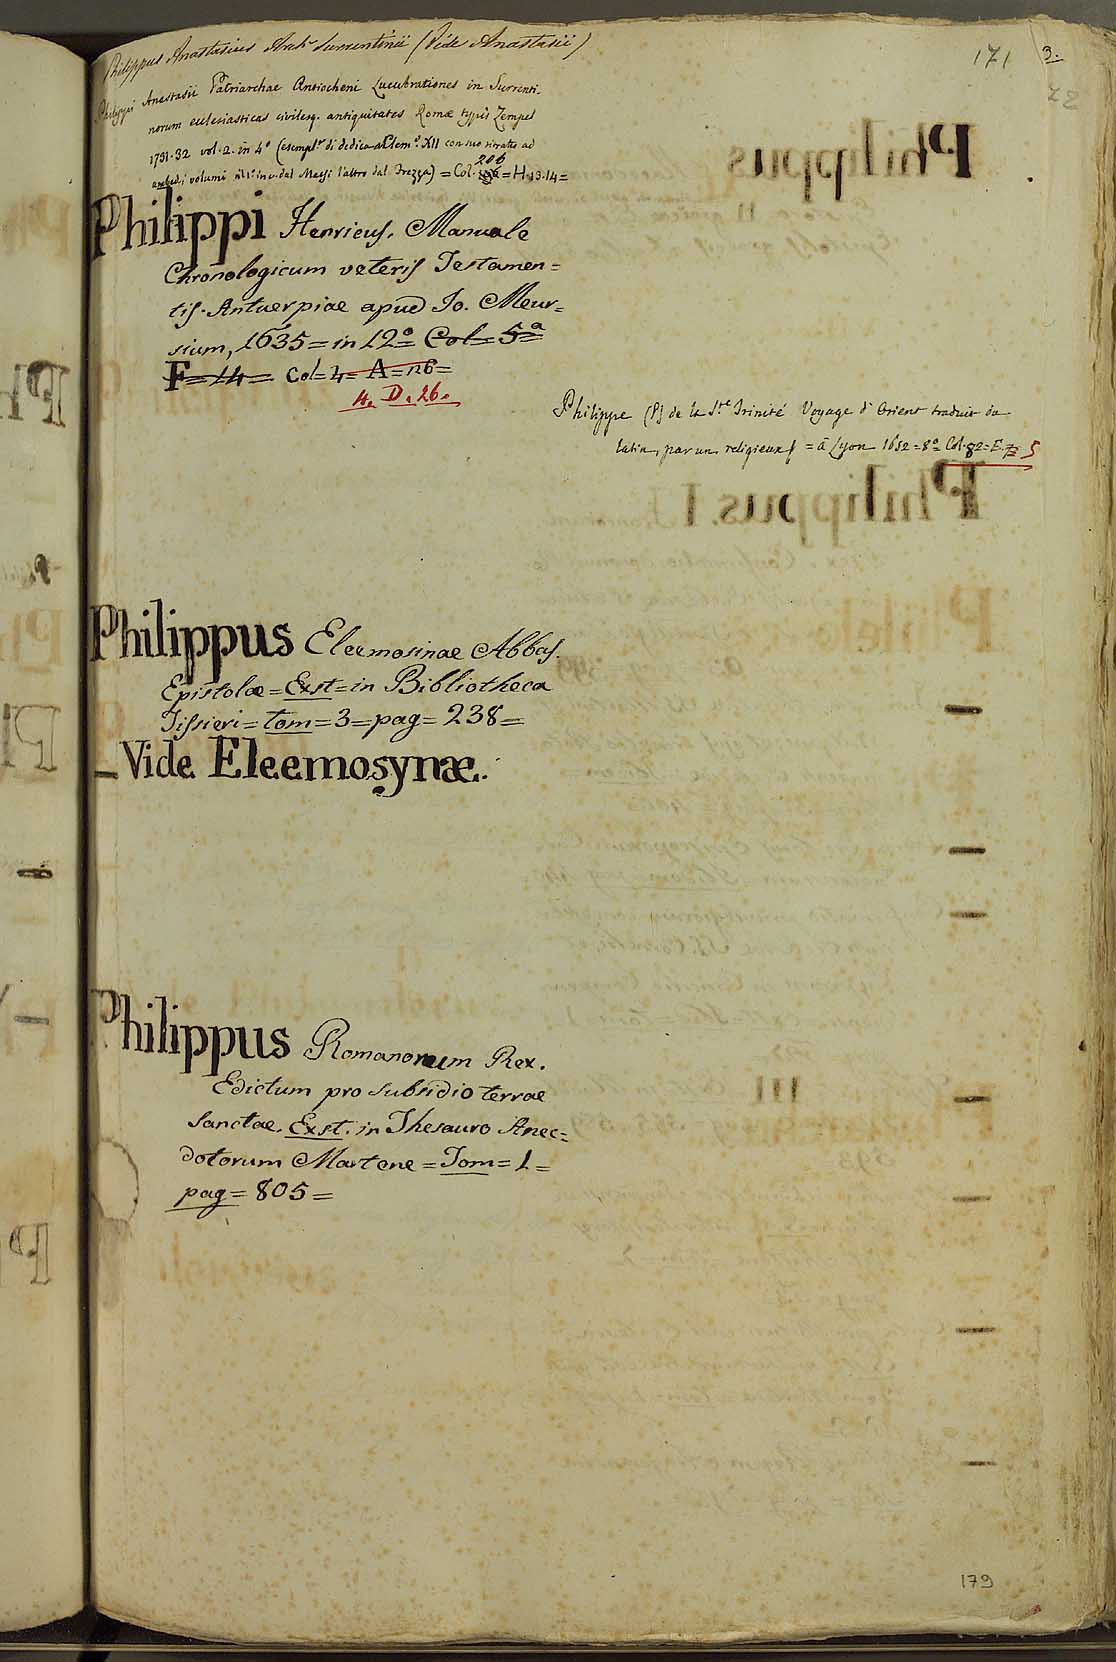 Philippus Anastasius Arch. Surrentinii (Vide Anastasii)
171 3.
72
Philippi Anastasii Patriarchae Antiocheni Lucubrationes in Surrenti-
norum ecclesiasticas civilesq. antiquitates Romæ typis Zempel
1731.32 vol. 2. in 4º (esempl.e di dedica a Clem.e XII con suo ritratto ad
ambed.i volumi il 1º inc. dal Massi l'altro dal Frezza) = Col. 206 = H.13.14=
Philippi Henricus. Manuale
Chronologicum veteris Testamen=
tis. Antuerpiae apud Jo. Meur=
sium, 1635 = in 12º = Col = 5ª
F = 14 = Col = 4 = A = 26 =
4. D. 26.
Philippe (P) de la S.te Trinité Voyage d'Orient traduit du
latin, par un religieux = à Lyon 1652 = 8º Col. 82 = E. 5
Philippus Eleemosinae Abbas.
Epistolæ = Exst = in Bibliotheca
Tissieri = tom = 3 = pag = 238 =
_ Vide Eleemosynæ.
Philippus Romanorum Rex.
Edictum pro subsidio terrae
sanctae. Exst. in Thesauro Anec=
dotorum Martene = Tom = 1 =
pag = 805 =
179